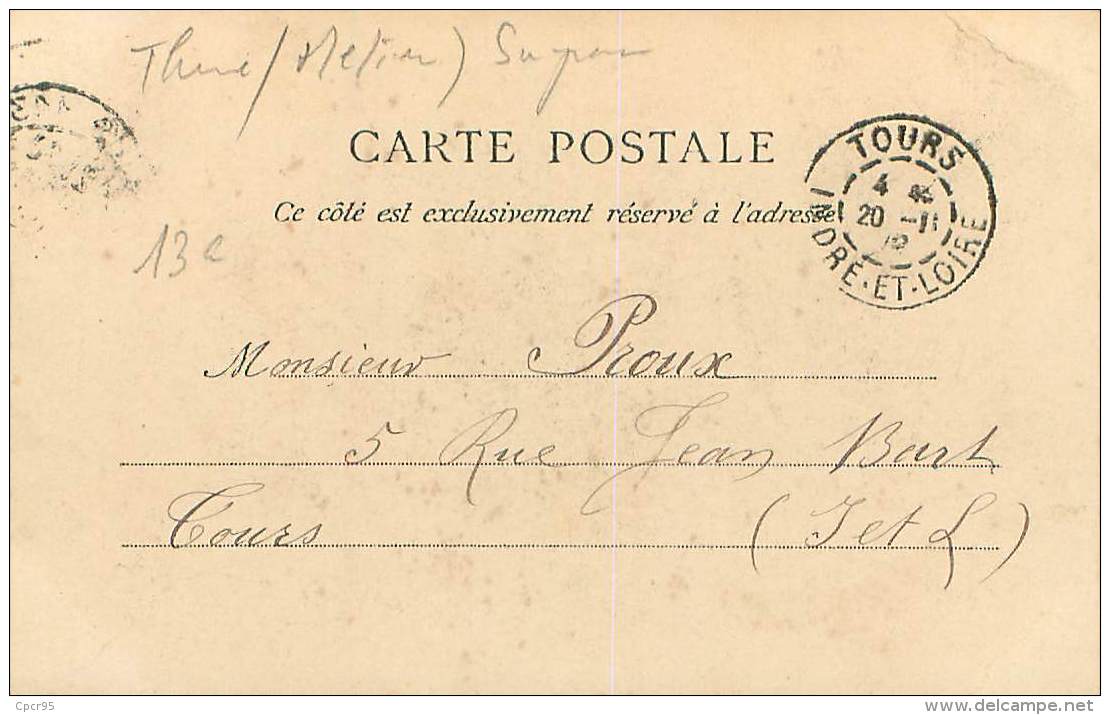 CARTE POSTALE
Ce côté est exclusivement réservé à l'adresse
TOURS
4
20 -11
INDRE-ET-LOIRE
13e
Monsieur Proux
5 Rue Jean Bart
Tours (I et L)
Cpcr95
www.delcampe.net